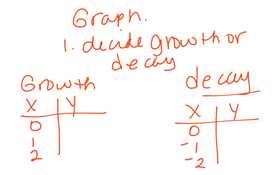 Graph.
1. decide growth or
decay
Growth
X Y
0
1
2
decay
X Y
0
-1
-2